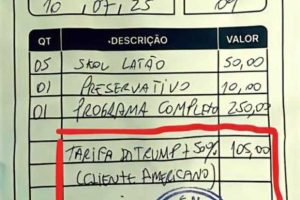 10 , 07, 25 09
QT DESCRIÇÃO VALOR
05 SKOL LATÃO 50,00
01 PRESERVATIVO 10,00
01 PROGRAMA COMPLETO 250,00
TARIFA DO TRUMP + 50% 105,00
(CLIENTE AMERICANO)